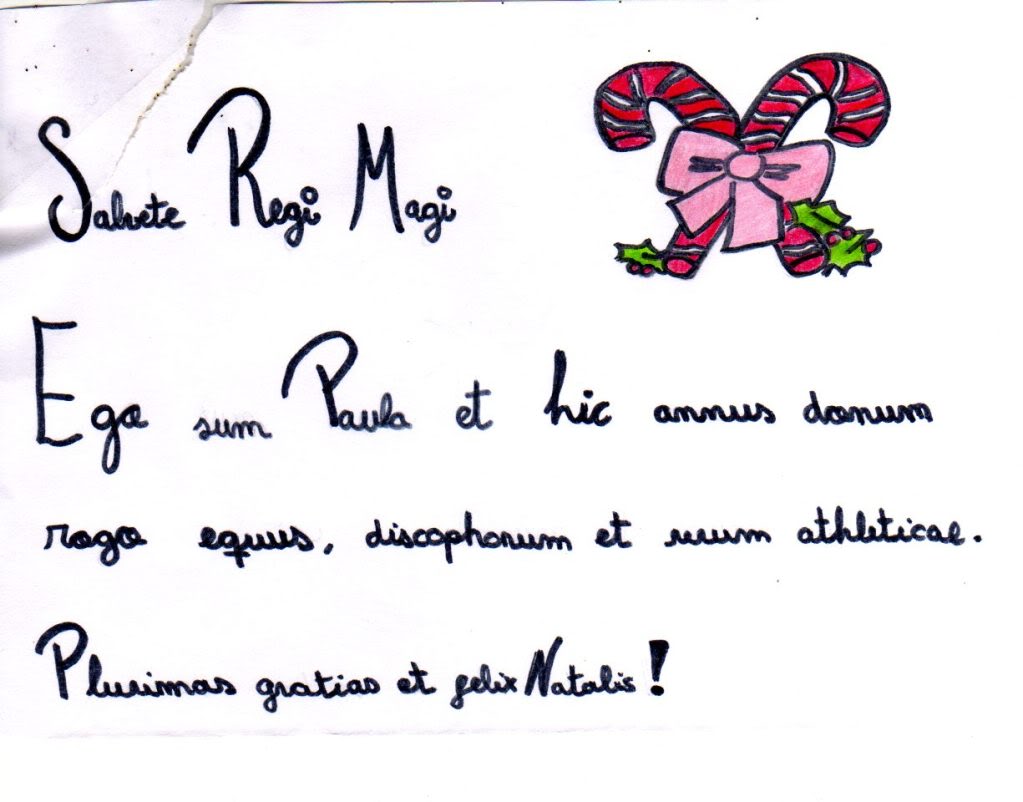 Salvete Regi Magi
Ego sum Paula et hic annus donum
rogo equus, discophorum et athleticae.
Plurimas gratias et felix Natalis!